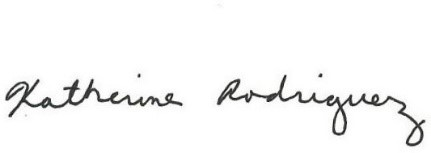 Katherine Rodriguez